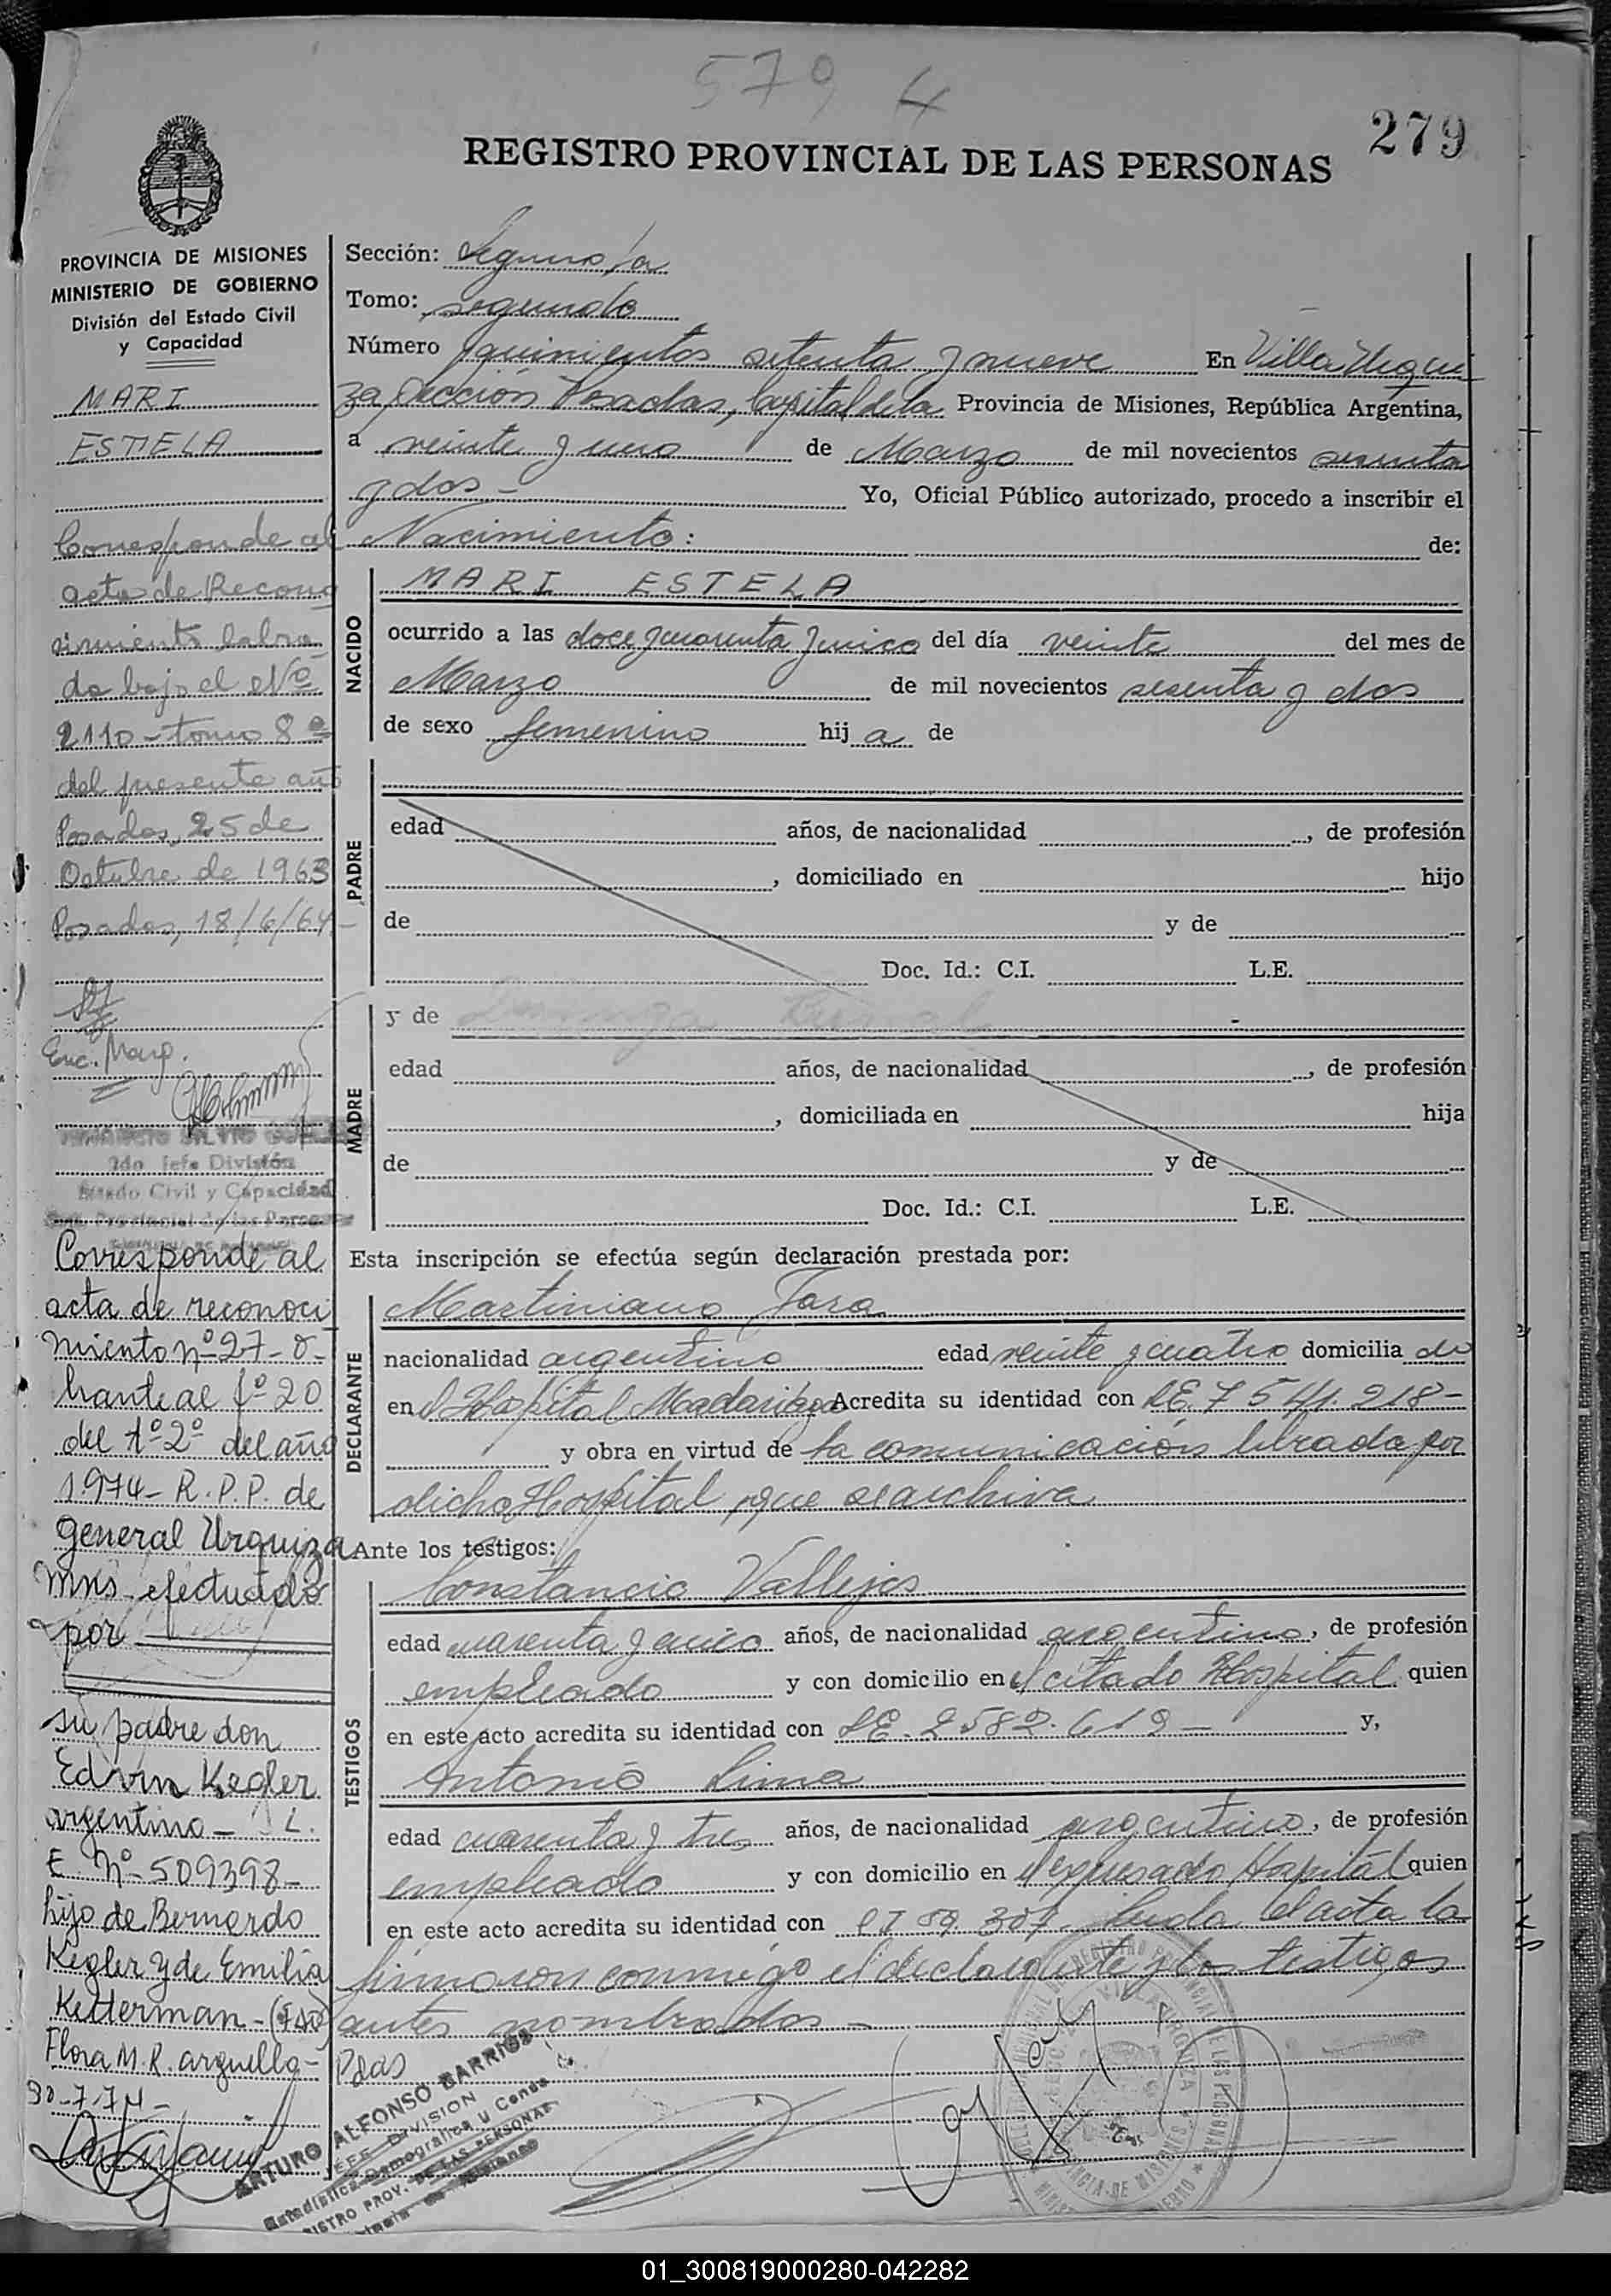 579 4
279
REGISTRO PROVINCIAL DE LAS PERSONAS
PROVINCIA DE MISIONES
MINISTERIO DE GOBIERNO
División del Estado Civil
y Capacidad
MARI
ESTELA
Corresponde al
acta de Recono
cimiento labra
do bajo el Nº
2110 - tomo 8º
del presente año
Posadas, 25 de
Octubre de 1963
Posadas, 18/6/64 -
Enc. Marg.
2do Jefe División
Estado Civil y Capacidad
Reg. Provincial de las Personas
Corresponde al
acta de reconoci
miento nº 27 - o-
brante al fº 20
del tº 2º del año
1974 - R. P. P. de
General Urquiza
Mns - efectuado
por
su padre don
Edvin Kegler
argentino - L.
E. Nº 509398 -
hijo de Bernardo
Kegler y de Emilia
Ketterman - (Fdo)
Flora M. R. arguello -
Pdas
30-7-74 -
Sección: Segunda
Tomo: segundo
Número quinientos setenta y nueve En Villa Urqui
za Sección Posadas, Capital de la Provincia de Misiones, República Argentina,
a veinte y uno de Marzo de mil novecientos sesenta
y dos - Yo, Oficial Público autorizado, procedo a inscribir el
Nacimiento: de:
NACIDO
MARI ESTELA
ocurrido a las doce y cuarenta y cinco del día veinte del mes de
Marzo de mil novecientos sesenta y dos
de sexo femenino hij a de
PADRE
edad años, de nacionalidad , de profesión
, domiciliado en hijo
de y de
Doc. Id.: C.I. L.E.
MADRE
y de
edad años, de nacionalidad , de profesión
, domiciliada en hija
de y de
Doc. Id.: C.I. L.E.
Esta inscripción se efectúa según declaración prestada por:
DECLARANTE
Martiniano Jara
nacionalidad argentino edad veinte y cuatro domicilia do
en el Hospital Madariaga Acredita su identidad con LE. 7 544. 218 -
y obra en virtud de la comunicación librada por
dicho Hospital que se archiva
Ante los testigos:
TESTIGOS
Constancio Vallejos
edad cuarenta y cinco años, de nacionalidad argentino, de profesión
empleado y con domicilio en el citado Hospital quien
en este acto acredita su identidad con LE. 2582. 619 - y,
Antonio Lima
edad cuarenta y tres años, de nacionalidad argentino, de profesión
empleado y con domicilio en el expresado Hospital quien
en este acto acredita su identidad con 307. Leida el acta la
firmaron conmigo el declarante y los testigos
antes nombrados -
ARTURO ALFONSO BARRIOS
JEFE DIVISION
Estadistica Demografica y Censo
REGISTRO PROV. DE LAS PERSONAS
01_300819000280-042282